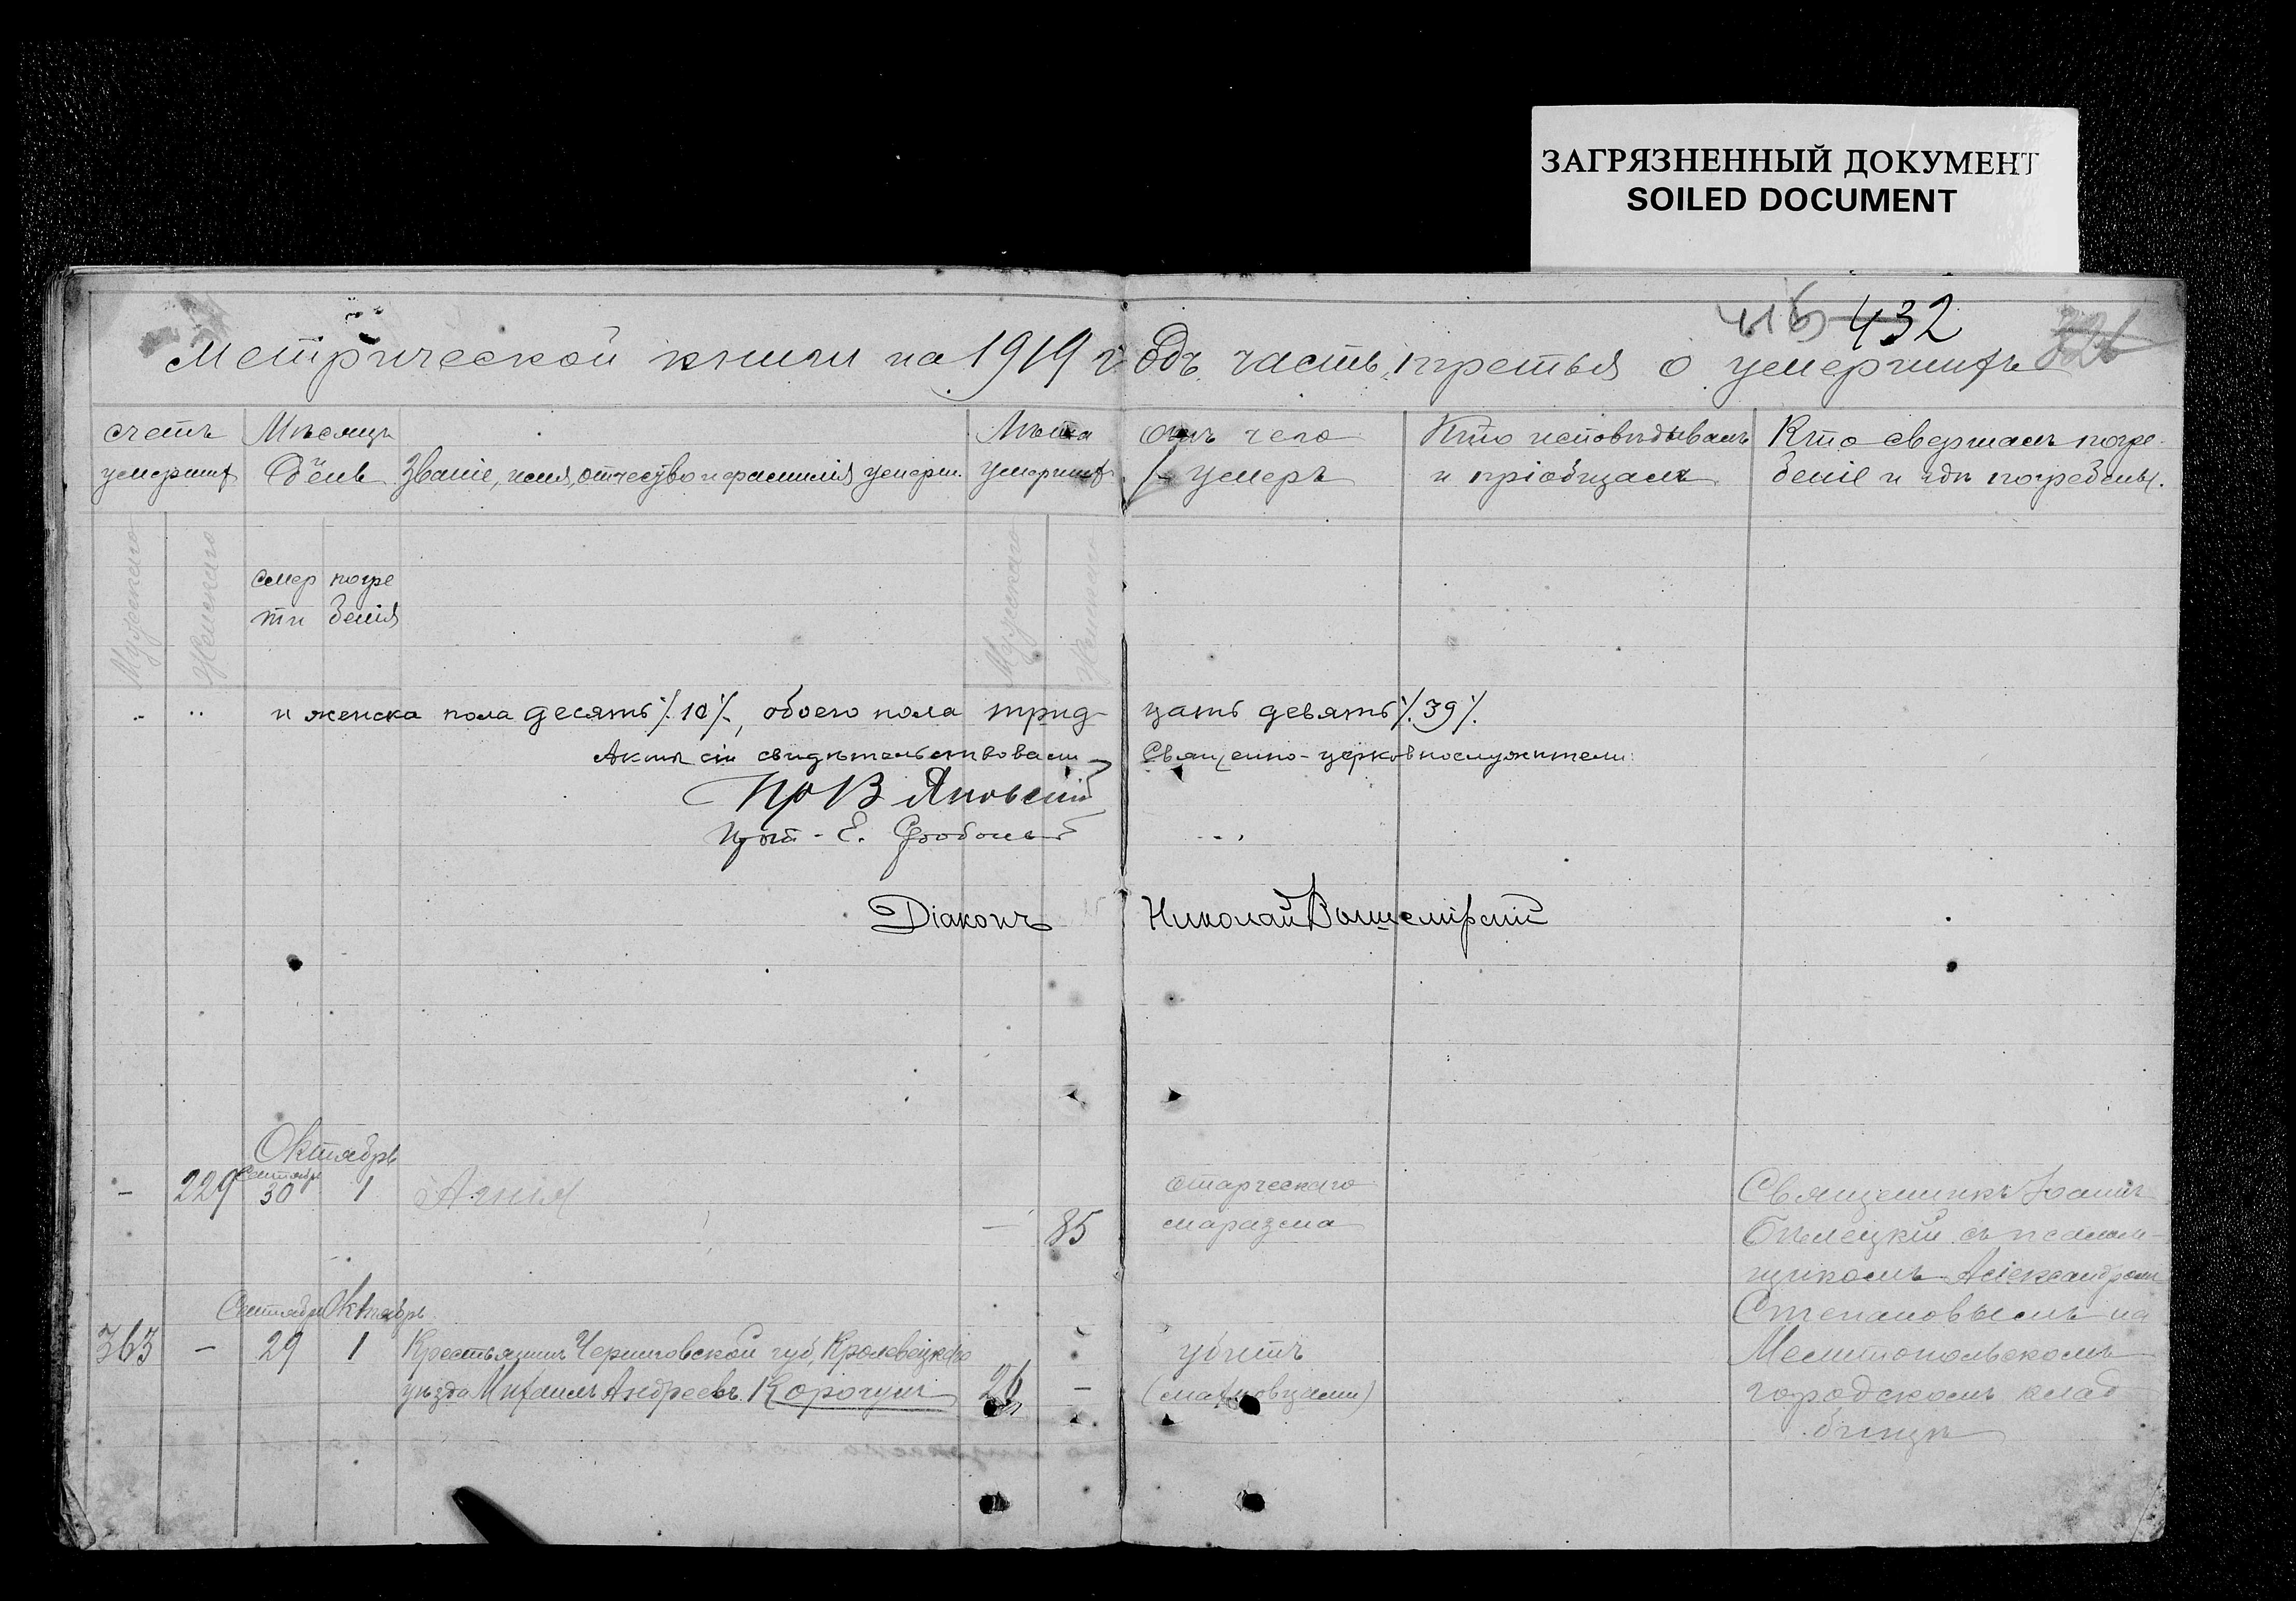 ЗАГРЯЗНЕННЫЙ ДОКУМЕНТ
SOILED DOCUMENT
416 432
Метрической книги на 1919 годъ, часть третья о умершихъ
счетъ умершихъ
Мужескаго
Женскаго
Мѣсяцъ и день
смерти
погребенія
Званіе, имя, отчество и фамилія умерш.
Лѣта умершихъ
Мужескаго
Женскаго
Отъ чего умеръ
Кто исповѣдывалъ и пріобщалъ
Кто свершалъ погребеніе и гдѣ погребены.
и женска пола десять ./.10./., обоего пола тридцать девять ./.39./.
Акты сіи свидѣтельствовали Священно-церковнослужители:
Пр В Яновскій
Прот - Е.
Діаконъ Николай
Октябрь
Сентябрь
- 229 30 1 Агнія - 85
старческаго
маразма
Священникъ Іоаннъ
Бѣлецкій съ псалом-
щикомъ Александромъ
Степановымъ на
Мелитопольскомъ
городскомъ клад
бищѣ
Сентябрь Октябрь
363 - 29 1 Крестьянинъ Черниговской губ, Кролевецкаго
уѣзда Михаилъ Андреевъ Корочунъ 26 -
убитъ
(махновцами)